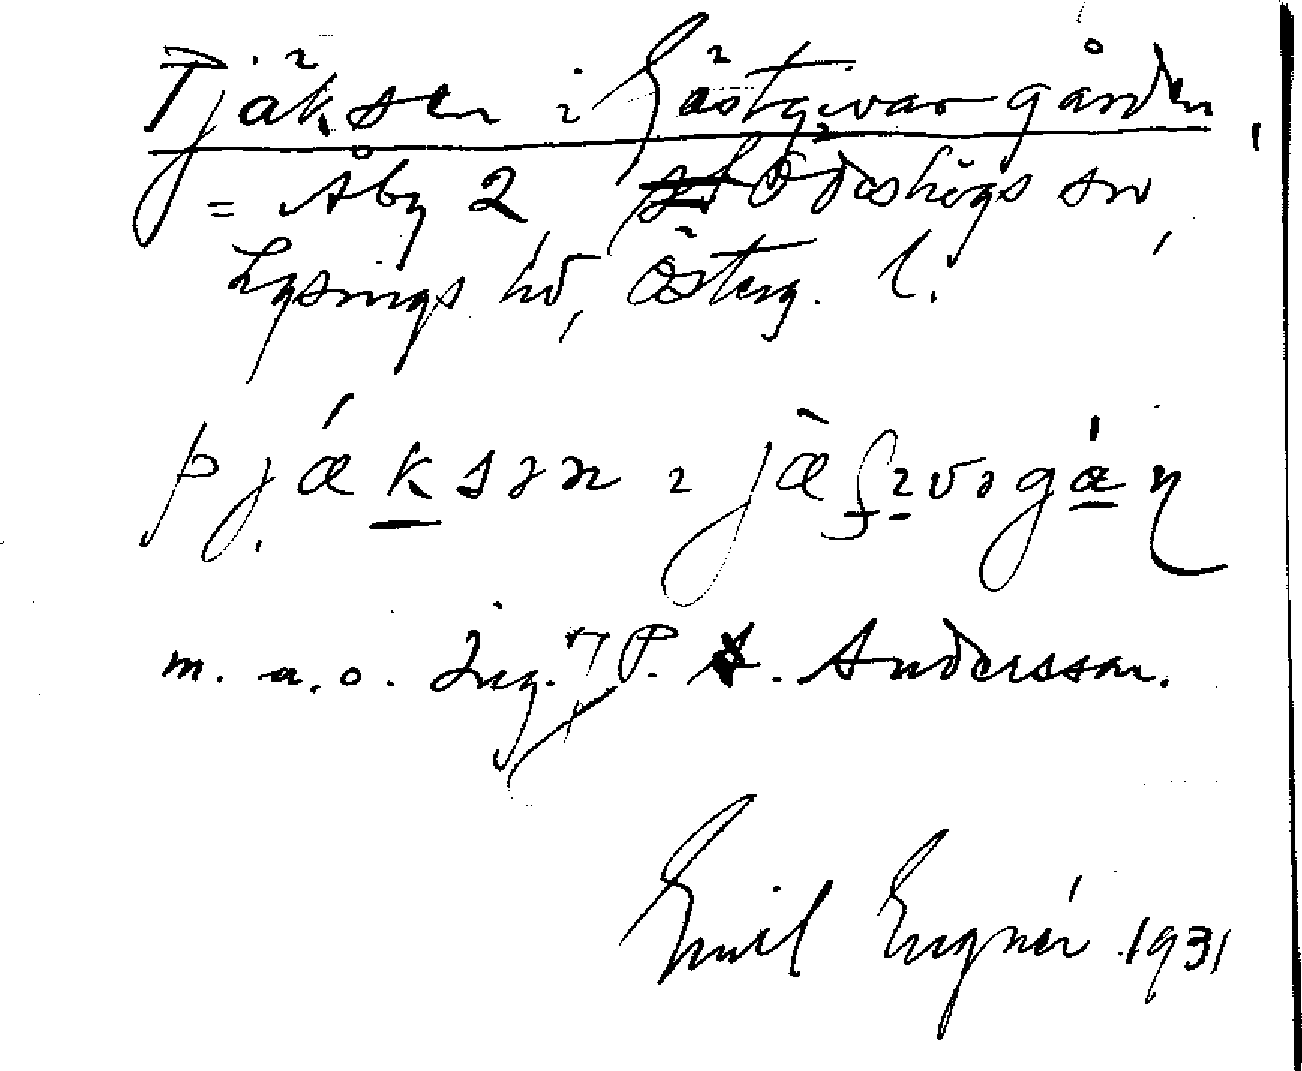 Pjäksen i Gästgivaregården,
= Åby 2 Ödeshögs sn,
Lysings hd, Österg. l.
pjǽksən ı jæ̀ʃıvəgán
m. a. o. Ing. P. A. Andersson.
Emil Engnér 1931